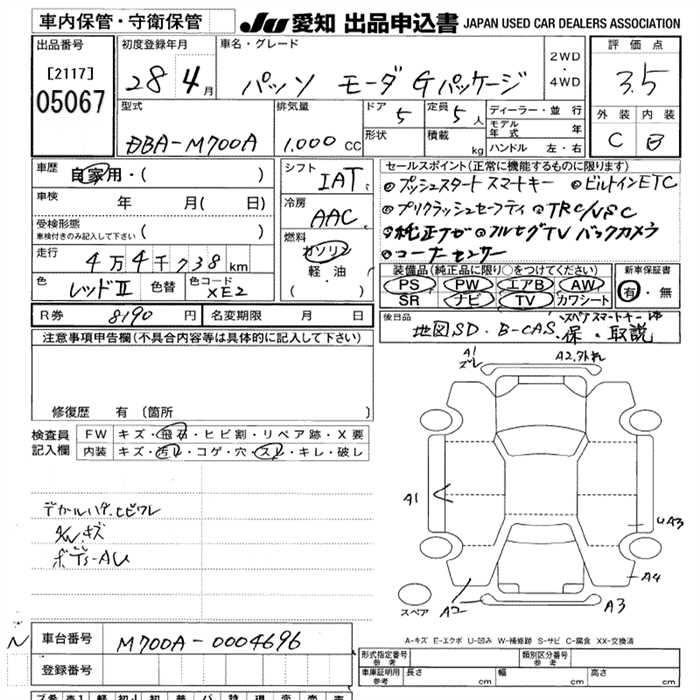 車内保管・守衛保管 JU 愛知 出品申込書 JAPAN USED CAR DEALERS ASSOCIATION
出品番号 初度登録年月 車名・グレード 2WD ・ 4WD 評価点
[2117] 28年4月 パッソ モーダ Gパッケージ 3.5
05067 型式 排気量 ドア 5 定員 5人 ディーラー・並行 外装 内装
DBA-M700A 1.000cc 形状 積載 kg モデル年式 年 C B
ハンドル 左・右
車歴 自家用・( ) シフト IAT セールスポイント(正常に機能するものに限ります)
車検 年 月( 日) 冷房 AAC プッシュスタート スマートキー ビルトインETC
受検形態 車検付きのみ記入して下さい ( ) プリクラッシュセーフティ TRC/VSC
走行 4万4千738km 燃料 ガソリン 軽油 ( ) 純正ナビ フルセグTV バックカメラ
コーナーセンサー
色 レッドⅡ 色替 色コード XE2 装備品(純正品に限り○をつけてください) 新車保証書
PS PW エアB AW 有・無
SR ナビ TV カワシート
R券 8190円 名変期限 月 日 後日品 スペアスマートキー
地図SD・B-CAS 保・取説
注意事項申告欄(不具合内容等は具体的に記入して下さい)
修復歴 有(箇所
検査員記入欄 FW キズ・飛石・ヒビ割・リペア跡・X要
内装 キズ・汚レ・コゲ・穴・スレ・キレ・破レ
A1 ズレ A2.外れ
A1 UA3
A4
スペア A2 A3
デカールハゲ.ヒビワレ
A/W.キズ
車台番号 M700A-0004696
登録番号
A-キズ E-エクボ U-凹み W-補修跡 S-サビ C-腐食 XX-交換済
形式指定番号 参考 類別区分番号 参考
車庫証明用参考 長さ cm 幅 cm 高さ cm